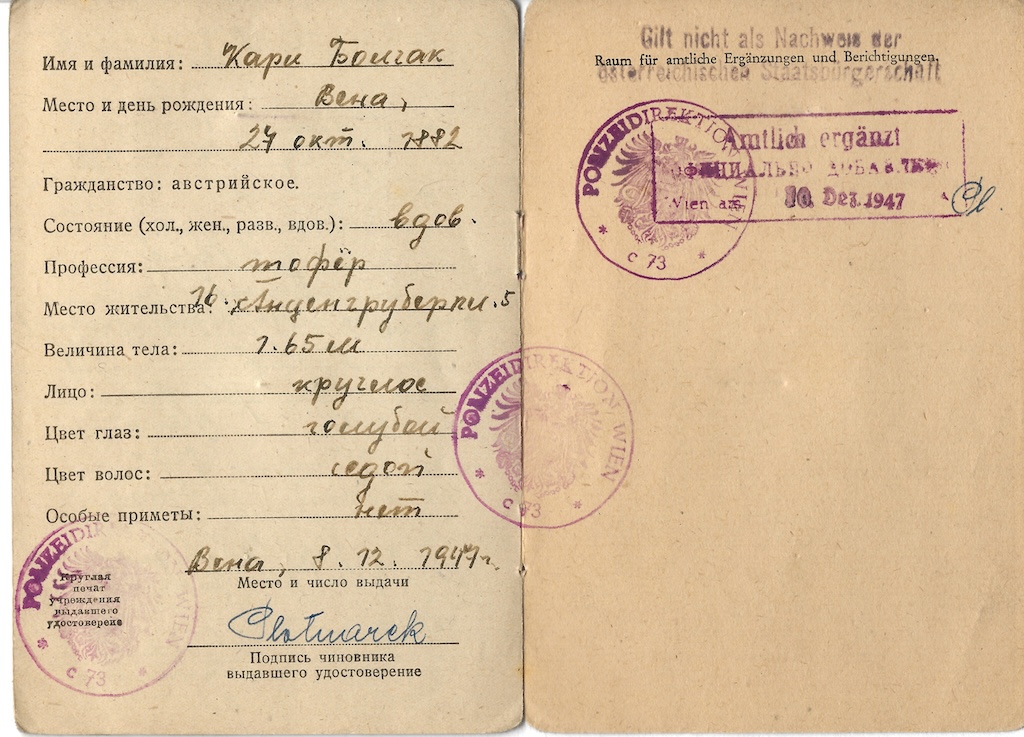 Имя и фамилия: Карл Болчак
Место и день рождения: Вена,
24 окт. 1882
Гражданство: австрийское.
Состояние (хол., жен., разв., вдов.): вдов.
Профессия: шофёр
Место жительства: 16. Анценгруберпл. 5
Величина тела: 1.65 м
Лицо: круглое
Цвет глаз: голубой
Цвет волос: седой
Особые приметы: нет
Вена, 8. 12. 1947 г.
Место и число выдачи
Круглая
печат
учреждения
выдавшего
удостоверене
Подпись чиновника
выдавшего удостоверение
POLIZEIDIREKTION WIEN
* C 73 *
POLIZEIDIREKTION WIEN
* C 73 *
Gilt nicht als Nachweis der
Raum für amtliche Ergänzungen und Berichtigungen.
österreichischen Staatsbürgerschaft
POLIZEIDIREKTION WIEN
* C 73 *
Amtlich ergänzt
ОФИЦИАЛЬНО ДОБАВЛЕНО
Wien am 10. Dez. 1947